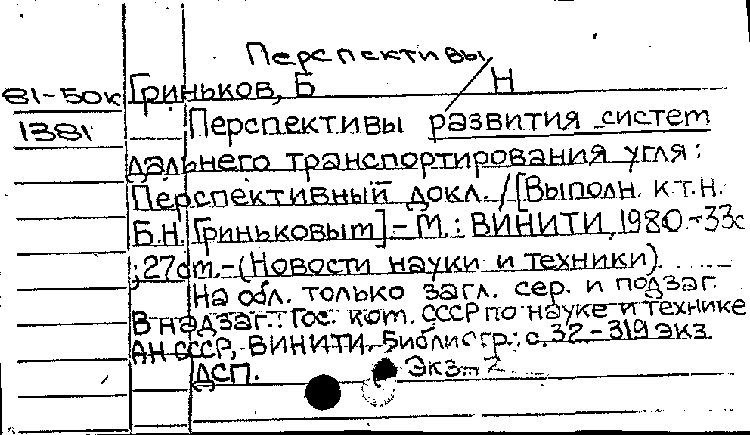 Перспективы
81-50к Гриньков, Б Н
1381 Перспективы развития систем
дальнего транспортирования угля:
Перспективный докл. /[Выполн. к.т.н.
Б.Н. Гриньковым].- М.: ВИНИТИ, 1980.-33с
;27см.-(Новости науки и техники).
На обл. только загл. сер. и подзаг.
В надзаг.: Гос. ком. СССР по науке и технике
АН СССР, ВИНИТИ. Библиогр.: с. 32-319 экз.
ДСП. Экз. 2